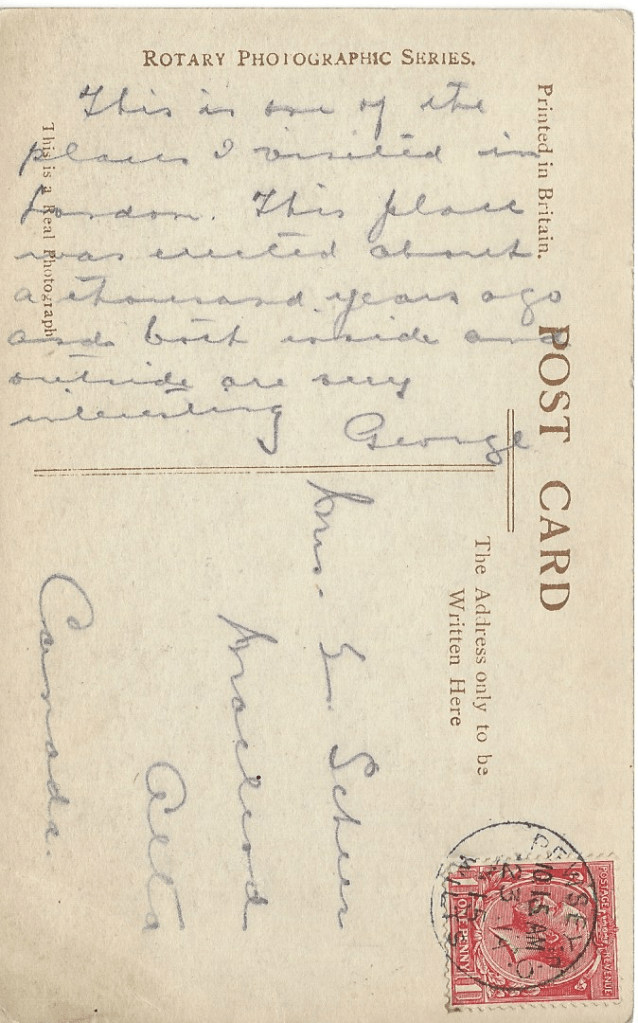 ROTARY PHOTOGRAPHIC SERIES.
This is one of the
places I visited in
London. This place
was erected about
a thousand years ago
and both inside and
outside are very
interesting George
This is a Real Photograph
Printed in Britain.
POST CARD
The Address only to be
Written Here
Mrs. G. Scheer
Macleod
Alta
Canada.
10.15 AM
23
15
WILTS
POSTAGE REVENUE
ONE PENNY